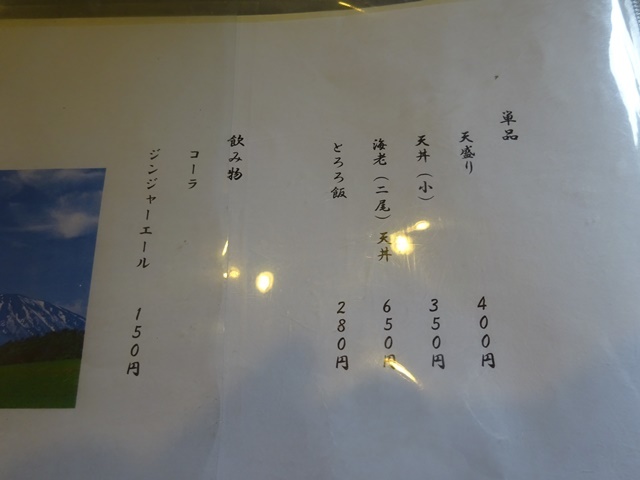 単品
天盛り 400円
天丼（小） 350円
海老（二尾）天丼 650円
とろろ飯 280円
飲み物
コーラ
ジンジャーエール 150円